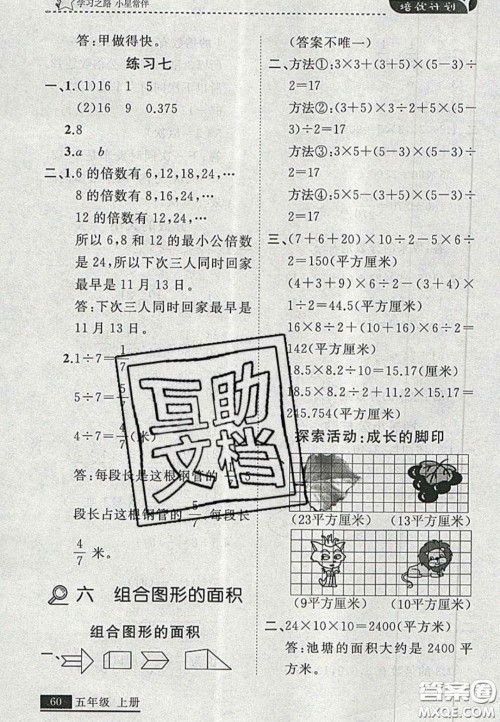 学习之路 小星常伴
培优计划
答:甲做得快。
练习七
一、1.(1)16 1 5
(2)16 9 0.375
2.8
3.a b
二、1.6 的倍数有 6,12,18,24,…
8 的倍数有 8,16,24,…
12 的倍数有 12,24,…
所以 6,8 和 12 的最小公倍数
是 24,所以下次三人同时回家
最早是 11 月 13 日。
答:下次三人同时回家最早是
11 月 13 日。
2.1÷7=1/7
5÷7=
4÷7=4/7(米)
答:每段长是这根钢管的
段长占这根钢管的 5/7,每段长
4/7 米。
六 组合图形的面积
组合图形的面积
一、
60 五年级 上册
(答案不唯一)
二、方法①:3×3+(3+5)×(5-3)÷
2=17
方法②:(3+5)×3÷2+5×(5-
3)÷2=17
方法③:3×5+(5-3)×(5-3)
÷2=17
方法④:5×5-(3+5)×(5-3)
÷2=17
三、(7+6+20)×10÷2-5×6÷
2=150(平方厘米)
(4+3+9)×6÷2-(4+3)×
1÷2=44.5(平方厘米)
16×8÷2+(10+16)×6÷2=
142(平方厘米)
18.5×8.2÷10=15.17(厘米)
18.5×8.2+15.17×12.4÷2=
245.754(平方厘米)
探索活动:成长的脚印
一、
(23平方厘米) (13平方厘米)
(9平方厘米) (10平方厘米)
二、24×10×10=2400(平方米)
答:池塘的面积大约是 2400
平方米。
互助文档
答案圈
MXQE.COM